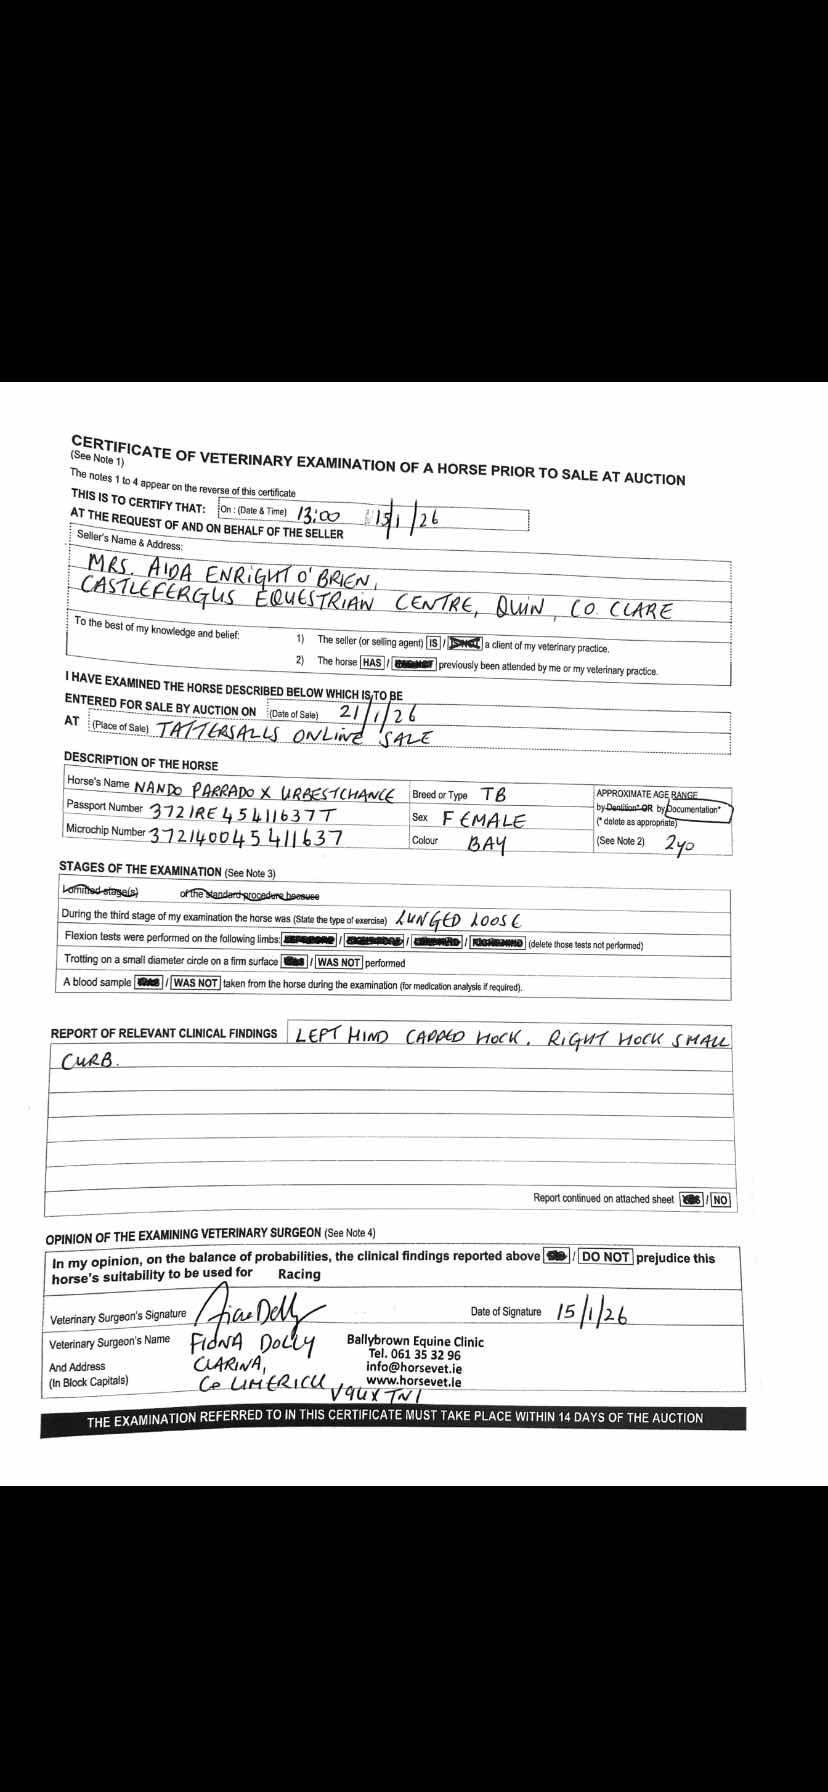 CERTIFICATE OF VETERINARY EXAMINATION OF A HORSE PRIOR TO SALE AT AUCTION
(See Note 1)
The notes 1 to 4 appear on the reverse of this certificate
THIS IS TO CERTIFY THAT: On : (Date & Time) 13:00 15/1/26
AT THE REQUEST OF AND ON BEHALF OF THE SELLER
Seller's Name & Address:
MRS. AIDA ENRIGHT O'BRIEN,
CASTLEFERGUS EQUESTRIAN CENTRE, QUIN, CO. CLARE
To the best of my knowledge and belief: 1) The seller (or selling agent) IS / IS NOT a client of my veterinary practice.
2) The horse HAS / HAS NOT previously been attended by me or my veterinary practice.
I HAVE EXAMINED THE HORSE DESCRIBED BELOW WHICH IS TO BE
ENTERED FOR SALE BY AUCTION ON (Date of Sale) 21/1/26
AT (Place of Sale) TATTERSALLS ONLINE SALE
DESCRIPTION OF THE HORSE
Horse's Name NANDO PARRADO X URBESTCHANCE Breed or Type TB APPROXIMATE AGE RANGE
by Dentition* OR by Documentation*
Passport Number 372IRE45411637T Sex FEMALE (* delete as appropriate)
Microchip Number 372140045411637 Colour BAY (See Note 2) 2yo
STAGES OF THE EXAMINATION (See Note 3)
I omitted stage(s) of the standard procedure because
During the third stage of my examination the horse was (State the type of exercise) LUNGED LOOSE
Flexion tests were performed on the following limbs: / / / RIGHT HIND (delete those tests not performed)
Trotting on a small diameter circle on a firm surface WAS / WAS NOT performed
A blood sample WAS / WAS NOT taken from the horse during the examination (for medication analysis if required).
REPORT OF RELEVANT CLINICAL FINDINGS LEFT HIND CAPPED HOCK. RIGHT HOCK SMALL
CURB.
Report continued on attached sheet YES / NO
OPINION OF THE EXAMINING VETERINARY SURGEON (See Note 4)
In my opinion, on the balance of probabilities, the clinical findings reported above DO / DO NOT prejudice this
horse's suitability to be used for Racing
Veterinary Surgeon's Signature Date of Signature 15/1/26
Veterinary Surgeon's Name FIONA DOLLY Ballybrown Equine Clinic
Tel. 061 35 32 96
And Address CLARINA, info@horsevet.ie
(In Block Capitals) Co LIMERICK www.horsevet.ie
V94X TN1
THE EXAMINATION REFERRED TO IN THIS CERTIFICATE MUST TAKE PLACE WITHIN 14 DAYS OF THE AUCTION